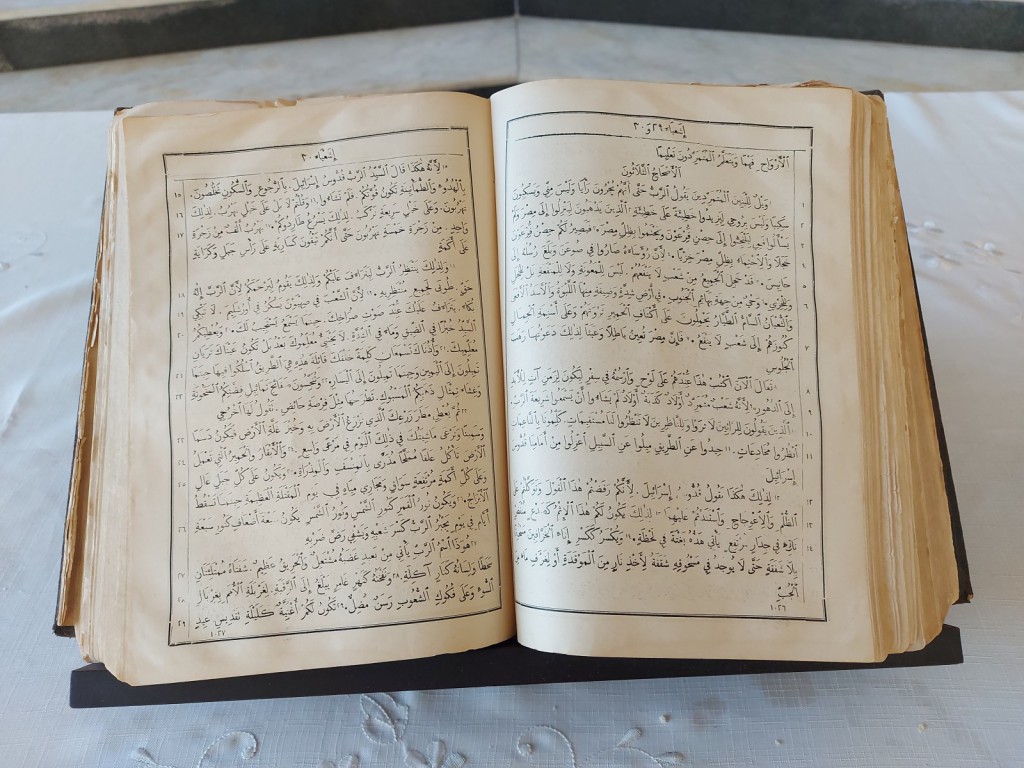 إشعياء ٢٩ و ٣٠
الأرواح فهما ويتعلم المتمردون تعليما
الأصحاح الثلاثون
ويل للبنين المتمردين يقول الرب حتى أنهم يجرون رأيا وليس مني ويسكبون ١
سكيبا وليس بروحي ليزيدوا خطيئة على خطيئة ٢ الذين يذهبون لينزلوا إلى مصر ولم ٢
يسألوا فمي ليلتجئوا إلى حصن فرعون ويحتموا بظل مصر ٣ فيصير لكم حصن فرعون ٣
خجلا والاحتماء بظل مصر خزيا ٤ لأن رؤساءه صاروا في صوعن وبلغ رسله إلى ٤
حانيس ٥ قد خجل الجميع من شعب لا ينفعهم. ليس للمعونة ولا للمنفعة بل للخجل ٥
وللخزي ٦ وحي من جهة بهائم الجنوب. في أرض شدة وضيقة منها اللبوة والأسد الأفعى ٦
والثعبان السام الطيار يحملون على أكتاف الحمير ثروتهم وعلى أسنمة الجمال
كنوزهم إلى شعب لا ينفع ٧ فإن مصر تعين باطلا وعبثا لذلك دعوتها رهب ٧
الجلوس
٨ تعال الآن اكتب هذا عندهم على لوح وارسمه في سفر ليكون لزمن آت للأبد ٨
إلى الدهور ٩ لأنه شعب متمرد أولاد كذبة أولاد لم يشاءوا أن يسمعوا شريعة الرب. ٩
١٠ الذين يقولون للرائين لا تروا وللناظرين لا تنظروا لنا مستقيمات. كلمونا بالناعمات ١٠
انظروا مخادعات ١١ حيدوا عن الطريق ميلوا عن السبيل اعزلوا من أمامنا قدوس ١١
إسرائيل
١٢ لذلك هكذا يقول قدوس إسرائيل. لأنكم رفضتم هذا القول وتوكلتم على
الظلم والاعوجاج واستندتم عليهما ١٣ لذلك يكون لكم هذا الإثم كصدع منقض ١٣
ناتئ في جدار مرتفع يأتي هده بغتة في لحظة ١٤ ويكسر ككسر إناء الخزافين مسحوقا ١٤
بلا شفقة حتى لا يوجد في مسحوقه شقفة لأخذ نار من الموقدة أو لغرف ماء من
الجب
١٠٢٦
إشعياء ٣٠
١٥ لأنه هكذا قال السيد الرب قدوس إسرائيل. بالرجوع والسكون تخلصون. ١٥
بالهدوء والطمأنينة تكون قوتكم. فلم تشاءوا ١٦ وقلتم لا بل على خيل نهرب. لذلك ١٦
تهربون. وعلى خيل سريعة نركب. لذلك يسرع طاردوكم ١٧ يهرب ألف من زجرة ١٧
واحد. من زجرة خمسة تهربون حتى أنكم تبقون كسارية على رأس جبل وكراية
على أكمة
١٨ ولذلك ينتظر الرب ليتراءف عليكم ولذلك يقوم ليرحمكم لأن الرب إله ١٨
حق. طوبى لجميع منتظريه ١٩ لأن الشعب في صهيون يسكن في أورشليم. لا تبكي
بكاء. يتراءف عليك عند صوت صراخك. حينما يسمع يستجيب لك ٢٠ ويعطيكم
السيد خبزا في الضيق وماء في الشدة. لا يختبئ معلموك بعد بل تكون عيناك تريان
معلميك ٢١ وأذناك تسمعان كلمة خلفك قائلة هذه هي الطريق اسلكوا فيها حينما ٢١
تميلون إلى اليمين وحينما تميلون إلى اليسار ٢٢ وتنجسون صفائح تماثيل فضتكم المنحوتة
وغشاء تمثال ذهبكم المسبوك. تطرحها مثل فرصة حائض. تقول لها اخرجي
٢٣ ثم يعطي مطر زرعك الذي تزرع الأرض به وخبز غلة الأرض فيكون دسما ٢٣
وسمينا وترعى ماشيتك في ذلك اليوم في مرعى واسع ٢٤ والأبقار والحمير التي تعمل
الأرض تأكل علفا مملحا مذرى بالمنسف والمذراة ٢٥ ويكون على كل جبل عال
وعلى كل أكمة مرتفعة سواقي ومجاري مياه في يوم المقتلة العظيمة حينما تسقط
الأبراج ٢٦ ويكون نور القمر كنور الشمس ونور الشمس يكون سبعة أضعاف كنور سبعة ٢٦
أيام في يوم يجبر الرب كسر شعبه ويشفي رض ضربه
٢٧ هوذا اسم الرب يأتي من بعيد غضبه مشتعل والحريق عظيم. شفتاه ممتلئتان ٢٧
سخطا ولسانه كنار آكلة ٢٨ ونفخته كنهر غامر يبلغ إلى الرقبة. لغربلة الأمم بغربال
السوء وعلى فكوك الشعوب رسن مضل ٢٩ تكون لكم أغنية كليلة تقديس عيد ٢٩
١٠٢٧